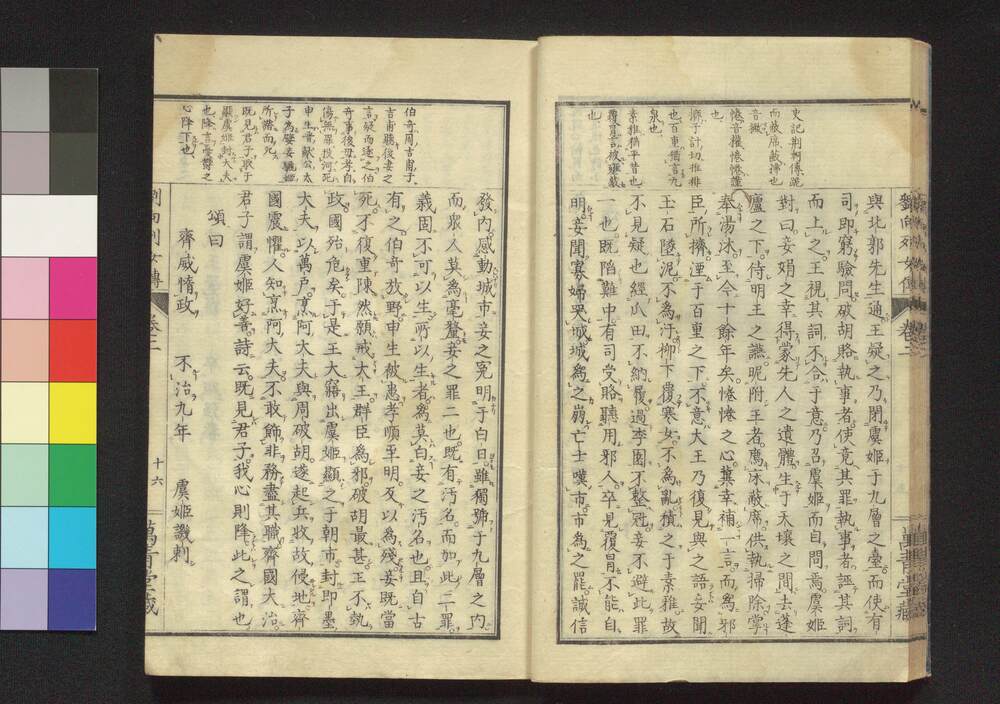 與北郭先生通王疑之乃閉虞姬于九層之臺而使有
司即窮驗問破胡賂執事者使竟其罪執事者誣其詞
而上之王視其詞不合于意乃召虞姬而自問焉虞姬
對曰妾娟之幸得蒙先人之遺體生于天壤之間去蓬
廬之下侍明王之讌昵附王者薦床蔽席供執掃除掌
奉湯沐至今十餘年矣惓惓之心冀幸補一言而為邪
臣所擠湮于百重之下不意大王乃復見與之語妾聞
玉石墜泥不為汙柳下覆寒女不為亂積之于素雅故
不見疑也經瓜田不納履過李園不整冠妾不避此罪
一也既陷難中有司受賂聽用邪人卒見覆冒不能自
明妾聞寡婦哭城城為之崩亡士嘆市市為之罷誠信
史記荊軻傳跪
而蔽席蔽拂也
音撇
惓音權惓惓謹
也
擠子計切推排
也百重猶言九
泉也
素雅猶平昔也
覆冒言被壅蔽
也
發內感動城市妾之冤明于白日雖獨號于九層之內
而眾人莫為毫釐妾之罪二也既有汚名而加此二罪
義固不可以生所以生者為莫白妾之汚名也且自古
有之伯奇放野申生被患孝順至明反以為殘妾既當
死不復重陳然願戒大王群臣為邪破胡最甚王不執
政國殆危矣于是王大寤出虞姬顯之于朝市封即墨
大夫以萬戶烹阿大夫與周破胡遂起兵收故侵地齊
國震懼人知烹阿大夫不敢飾非務盡其職齊國大治
君子謂虞姬好善詩云既見君子我心則降此之謂也
頌曰
齊威惰政 不治九年 虞姬譏刺
伯奇周吉甫子
吉甫聽後妻之
言疑而逐之伯
奇事後母孝自
傷無罪投河死
申生晉獻公太
子為嬖妾驪姬
所譖而死
既見君子取于
顯虞姬封大夫
也降言尊尊之
心降下也
劉向列女傳 卷三
十六
萬青堂藏